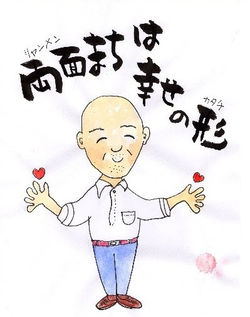 リャンメン
両面まちは
幸せの
カタチ
形